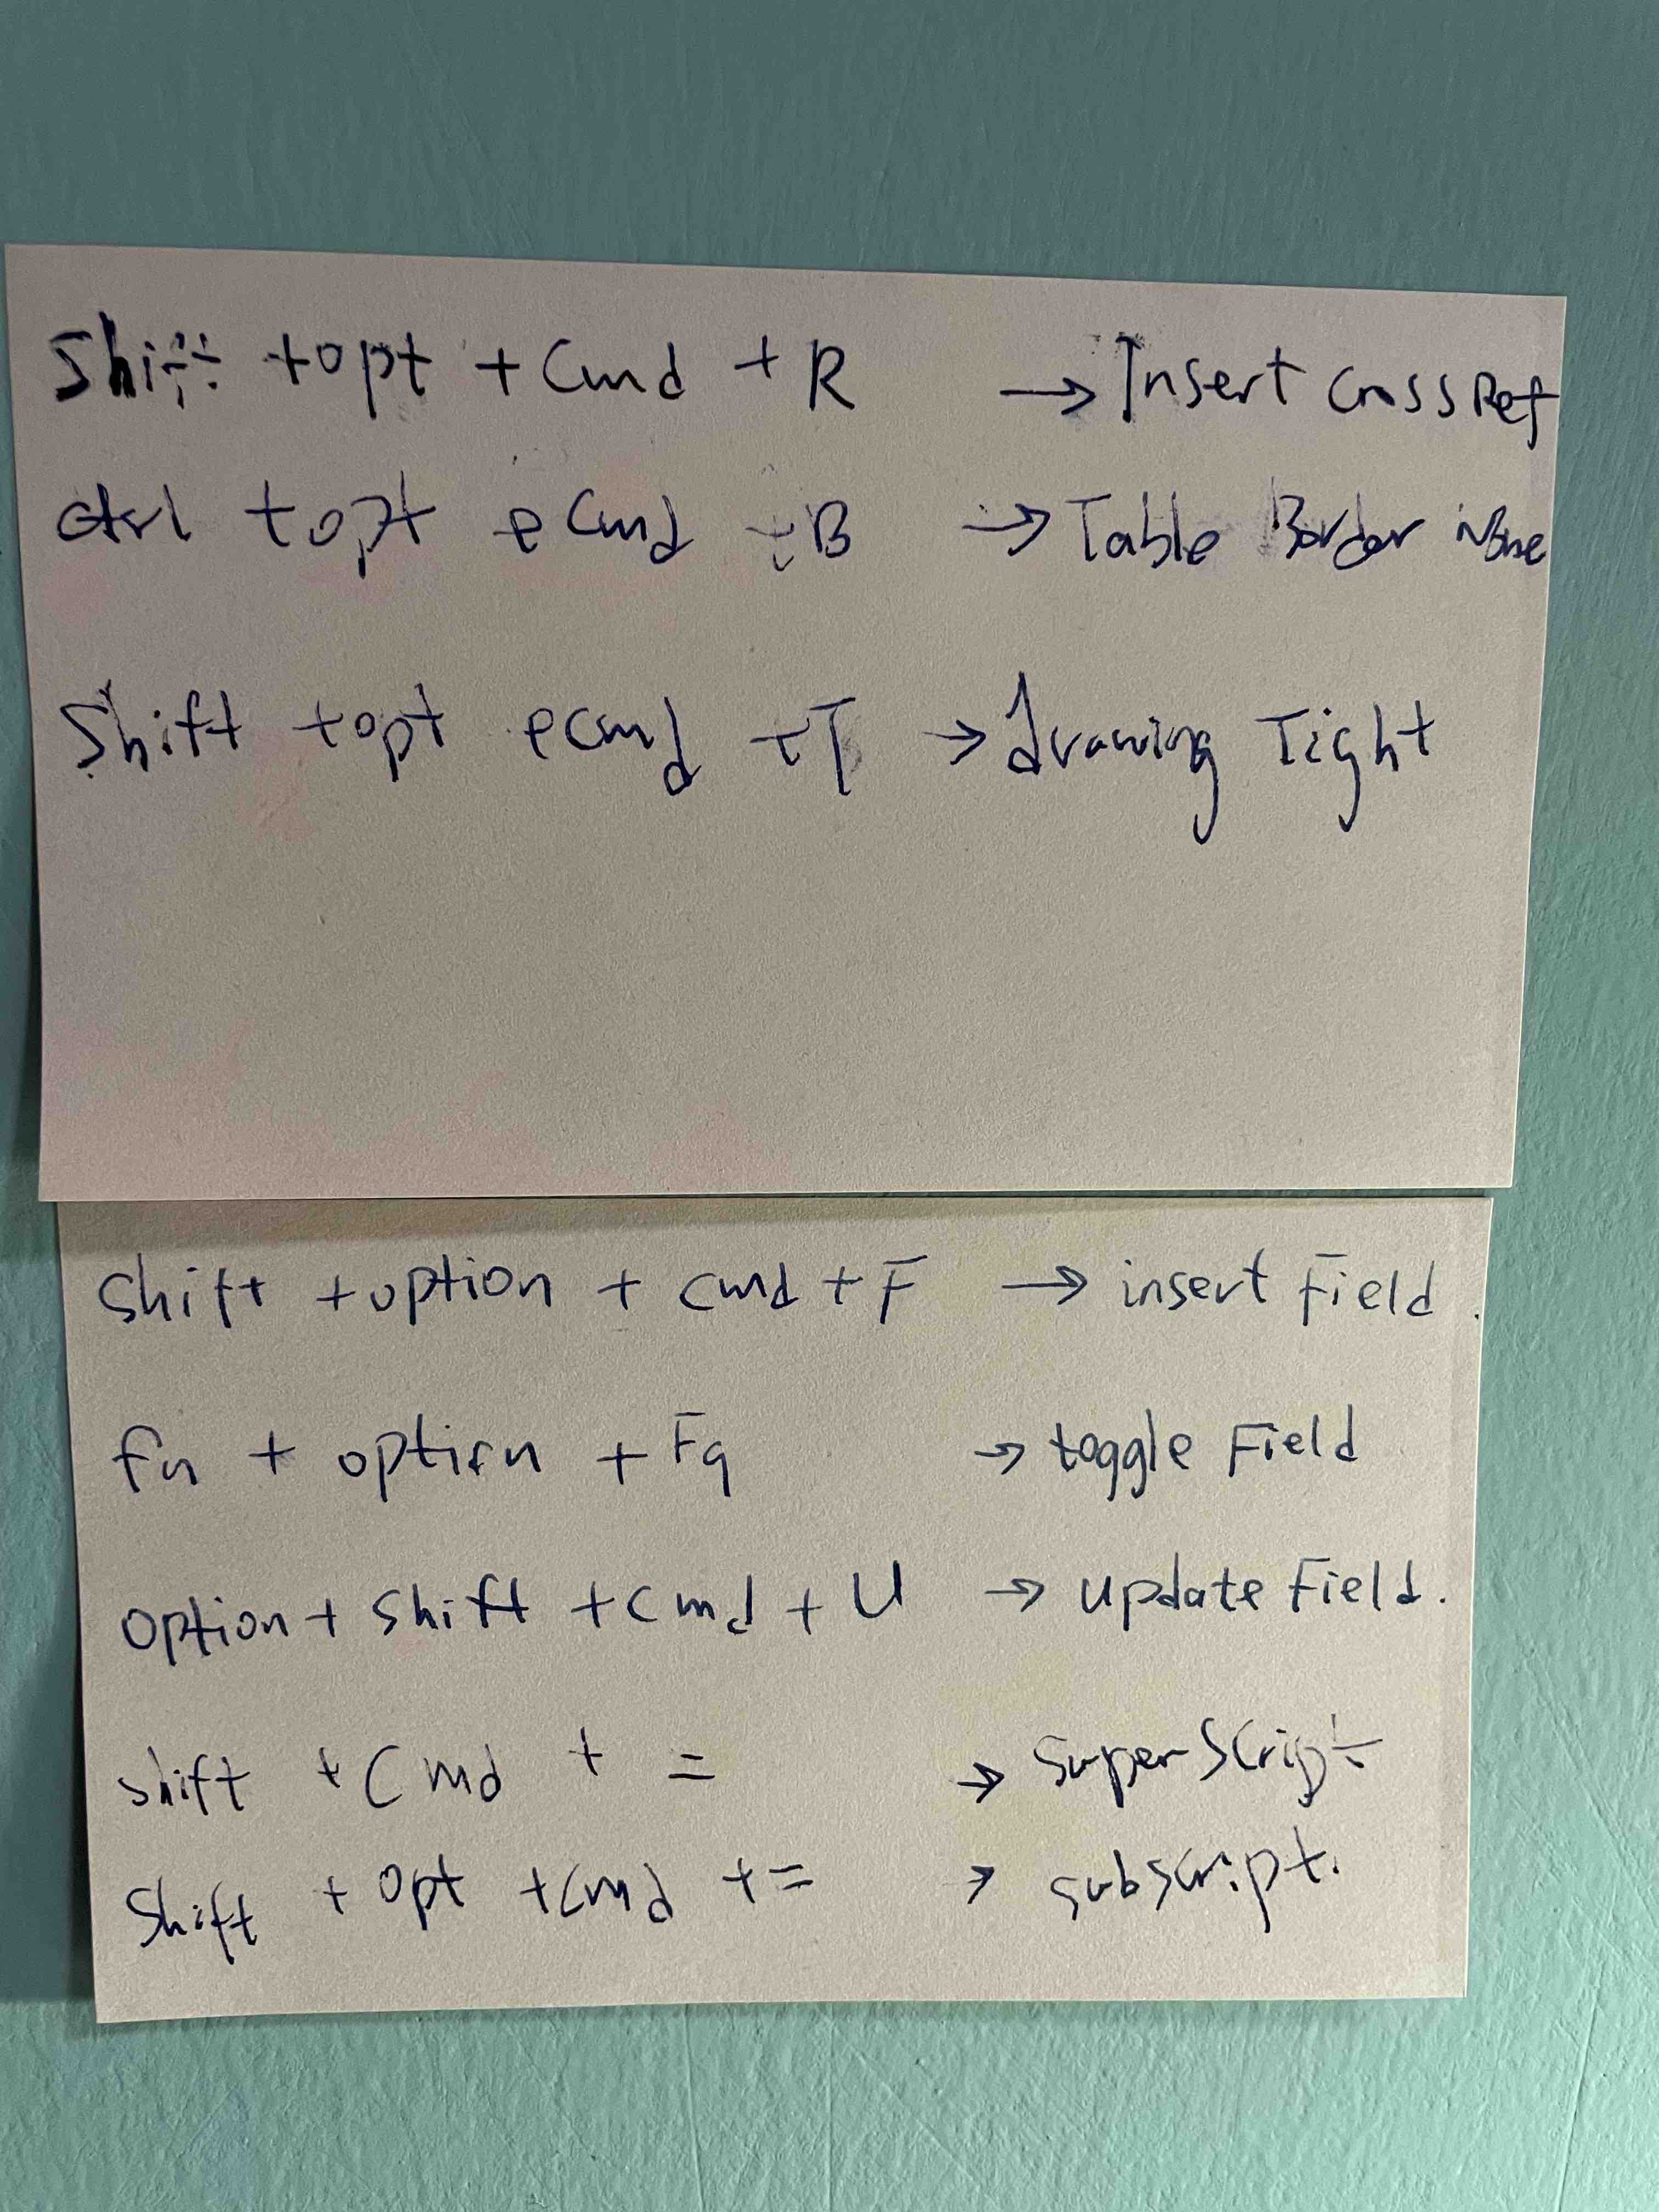 Shift + opt + Cmd + R → Insert Cross Ref
Ctrl + opt + Cmd + B → Table Border None
Shift + opt + Cmd + T → drawing Tight
Shift + option + cmd + F → insert Field.
fn + option + F9 → toggle Field
option + Shift + Cmd + U → update Field.
shift + Cmd + = → SuperScript
Shift + opt + Cmd + = → subscript.